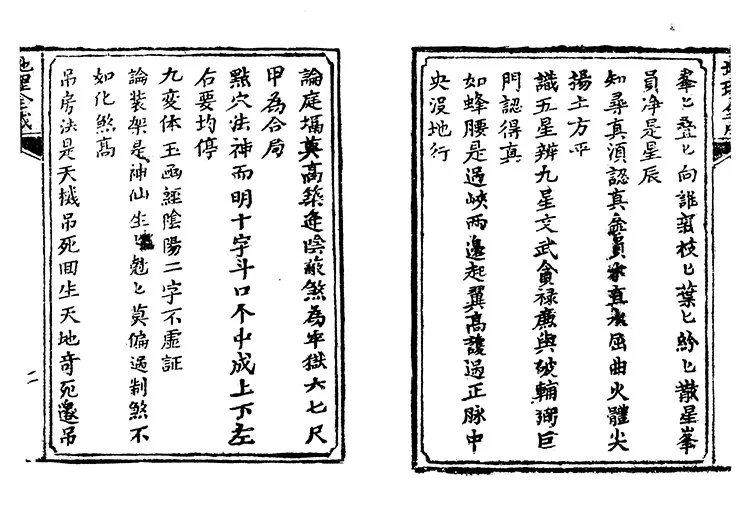 峯匕疊匕向誰貌枝匕葉匕紛匕散星峯
員净是星辰
知尋真湏認真金員木直水屈曲火體尖
揚土方平
識五星辨九星文武貪禄廉與破輔弼巨
門認得真
如蜂腰是過峽两邊起翼高護過正脉中
央没地行
論庭塥莫高築逢陰蔽煞為牢獄六七尺
甲為合局
點穴法神而明十字斗口不中成上下左
右要均停
九変体玉函經陰陽二字不虚証
論装架是神仙生匕尅匕莫偏過制煞不
如化煞高
吊房法是天機吊死回生天地奇死還吊
二